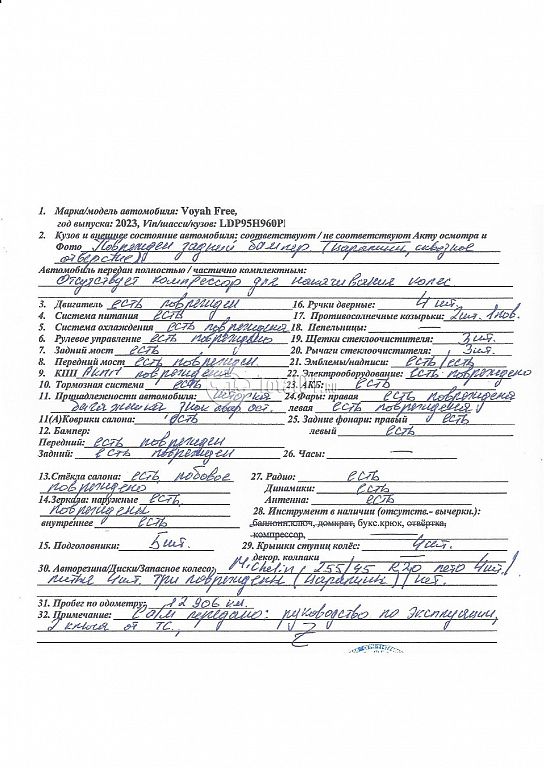 1. Марка/модель автомобиля: Voyah Free,
год выпуска: 2023, Vin/шасси/кузов: LDP95H960P
2. Кузов и внешнее состояние автомобиля: соответствуют / не соответствуют Акту осмотра и
Фото Поврежден задний бампер (царапины, сквозное
отверстие)
Автомобиль передан полностью / частично комплектным:
Отсутствует компрессор для накачивания колес
3. Двигатель есть поврежден 16. Ручки дверные: 4 шт.
4. Система питания есть 17. Противосолнечные козырьки: 2шт. 1 пов.
5. Система охлаждения есть повреждена 18. Пепельницы: —
6. Рулевое управление есть повреждено 19. Щетки стеклоочистителя: 3шт.
7. Задний мост есть 20. Рычаги стеклоочистителя: 3шт.
8. Передний мост есть поврежден 21. Эмблемы/надписи: есть/есть
9. КПП АКПП повреждена 22. Электрооборудование: есть повреждено
10. Тормозная система есть 23. АКБ: есть
11. Принадлежности автомобиля: шторка 24.Фары: правая есть повреждена
багажника знак авар ост. левая есть повреждена
11(А)Коврики салона: есть 25. Задние фонари: правый есть
12. Бампер: левый есть
Передний: есть поврежден
Задний: есть поврежден 26. Часы: —
13.Стёкла салона: есть, лобовое 27. Радио: есть
повреждено Динамики: есть
14.Зеркала: наружные есть, Антенна: есть
повреждены 28. Инструмент в наличии (отсутств.- вычеркн.):
внутреннее есть баллонн.ключ, домкрат, букс.крюк, отвёртка,
компрессор,
15. Подголовники: 5шт. 29. Крышки ступиц колёс: 4шт.
декор. колпаки
30. Авторезина/Диски/Запасное колесо: Michelin/ 255/45 R20 лето 4шт./
литые 4шт. три повреждены (царапины)/ шт.
31. Пробег по одометру: 12 906 км.
32. Примечание: С а/м передано: руководство по эксплуации,
2 ключа от ТС.